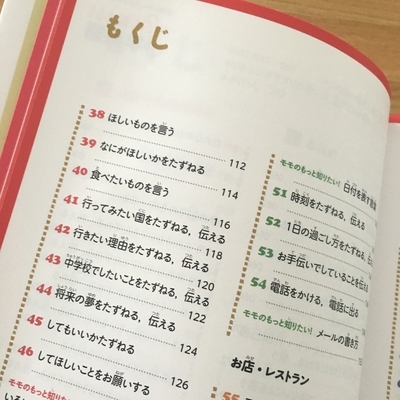 もくじ
38 ほしいものを言う
39 なにがほしいかをたずねる 112
40 食べたいものを言う 114
41 行ってみたい国をたずねる，伝える 116
42 行きたい理由をたずねる，伝える 118
43 中学校でしたいことをたずねる，伝える 120
44 将来の夢をたずねる，伝える 122
45 してもいいかたずねる 124
46 してほしいことをお願いする 126
モモのもっと知りたい!
モモのもっと知りたい! 日付を表す
51 時刻をたずねる，伝える
52 1日の過ごし方をたずねる，伝
53 お手伝いでしていることを伝え
54 電話をかける，電話に出る
モモのもっと知りたい! メールの書き方
お店・レストラン
55